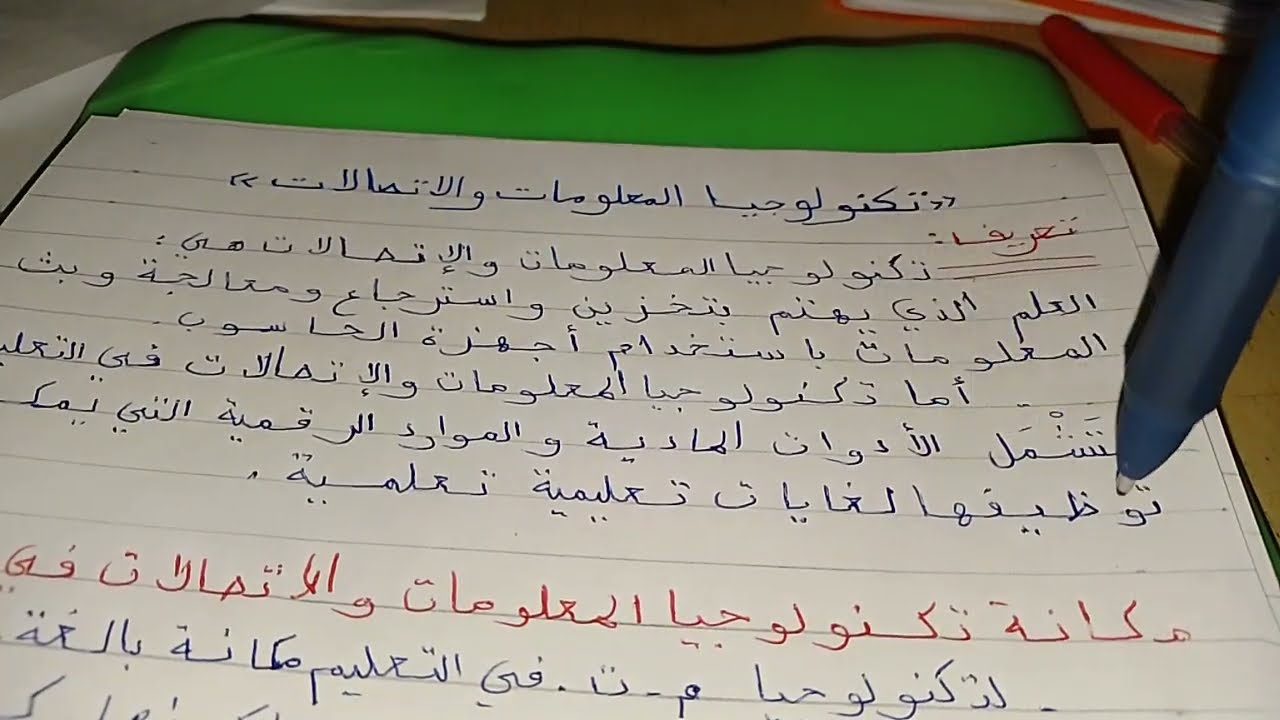 «تكنولوجيا المعلومات والاتصالات»
تعريف:
تكنولوجيا المعلومات والإتصالات هي:
العلم الذي يهتم بتخزين واسترجاع ومعالجة وبث
المعلومات باستخدام أجهزة الحاسوب.
أما تكنولوجيا المعلومات والإتصالات في التعليـ
تَشْمَل الأدوات المادية والموارد الرقمية التي يمكـ
توظيفها لغايات تعليمية تعلمية.
مكانة تكنولوجيا المعلومات والاتصالات في
لتكنولوجيا م.ت. في التعليم مكانة بالغة